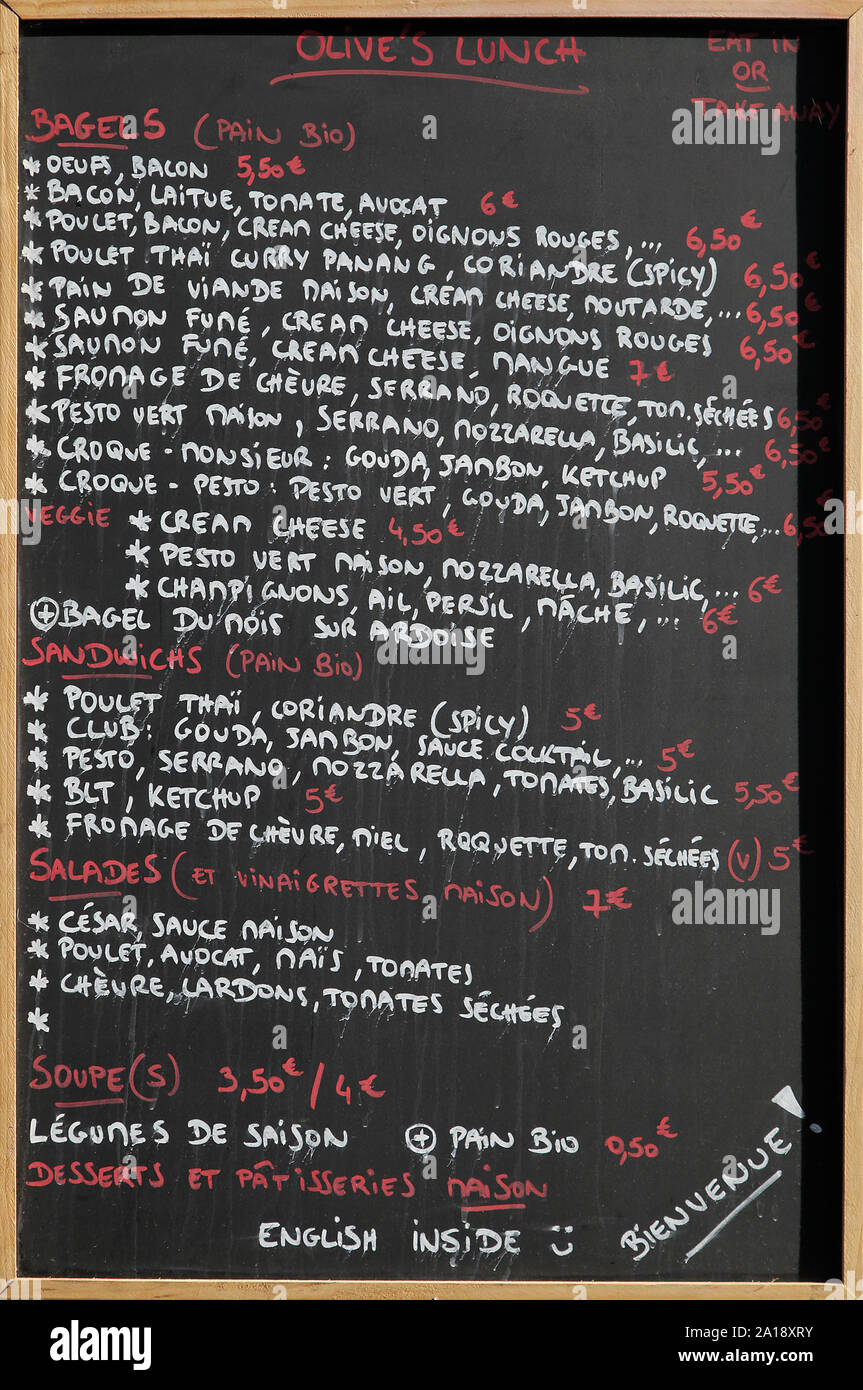 OLIVE'S LUNCH
EAT IN
OR
TAKE AWAY
BAGELS (PAIN BIO)
* OEUFS, BACON 5,50€
* BACON, LAITUE, TOMATE, AVOCAT 6€
* POULET, BACON, CREAM CHEESE, OIGNONS ROUGES, ... 6,50€
* POULET THAÏ CURRY PANANG, CORIANDRE (SPICY) 6,50€
* PAIN DE VIANDE MAISON, CREAM CHEESE, MOUTARDE, ... 6,50€
* SAUMON FUMÉ, CREAM CHEESE, OIGNONS ROUGES 6,50€
* SAUMON FUMÉ, CREAM CHEESE, MANGUE 7€
* FROMAGE DE CHÈVRE, SERRANO, ROQUETTE, TOM. SÉCHÉES 6,50€
* PESTO VERT MAISON, SERRANO, MOZZARELLA, BASILIC, ... 6,50€
* CROQUE-MONSIEUR: GOUDA, JAMBON, KETCHUP 5,50€
* CROQUE-PESTO: PESTO VERT, GOUDA, JAMBON, ROQUETTE, ... 6,50€
VEGGIE * CREAM CHEESE 4,50€
* PESTO VERT MAISON, MOZZARELLA, BASILIC, ... 6€
* CHAMPIGNONS, AIL, PERSIL, MÂCHE, ... 6€
⊕ BAGEL DU MOIS SUR ARDOISE
SANDWICHS (PAIN BIO)
* POULET THAÏ, CORIANDRE (SPICY) 5€
* CLUB: GOUDA, JAMBON, SAUCE COCKTAIL, ... 5€
* PESTO, SERRANO, MOZZARELLA, TOMATES, BASILIC 5,50€
* BLT, KETCHUP 5€
* FROMAGE DE CHÈVRE, MIEL, ROQUETTE, TOM. SÉCHÉES (V) 5€
SALADES (ET VINAIGRETTES MAISON) 7€
* CÉSAR, SAUCE MAISON
* POULET, AVOCAT, MAÏS, TOMATES
* CHÈVRE, LARDONS, TOMATES SÉCHÉES
*
SOUPE(S) 3,50€/4€
LÉGUMES DE SAISON ⊕ PAIN BIO 0,50€
DESSERTS ET PÂTISSERIES MAISON
ENGLISH INSIDE
BIENVENUE!
a
alamy
Image ID: 2A18XRY
www.alamy.com